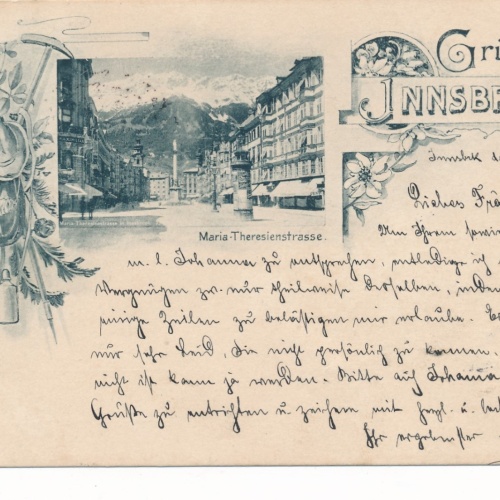 Gri
INNSBR
Maria-Theresienstrasse.
Innsbck d.
Liebes Frä
Um Ihrem sowie
m. l. Johanna zu entsprechen, entledige ich
Vergnügen zw. nur theilweise derselben, indem
einige Zeilen zu belästigen mir erlaube. Es
nur sehr leid, Sie nicht persönlich zu kennen.
nicht ist kann ja werden. Bitte auch Johanna
Grüße zu entrichten u zeichne mit hzgl. u.
Ihr ergebenster